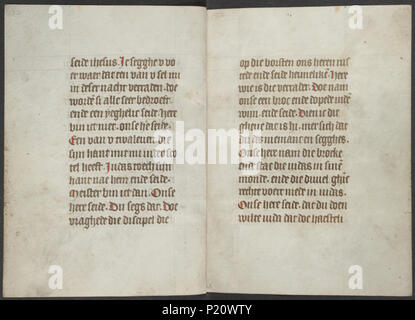 seide ihesus. Ic segghe v vo
re waer dat een van v sel mi
in deser nacht verraden. doe
worde si alle seer bedroeft
ende een yeghelic seide. here
bin ict niet. onse here seide.
Een van v twaleuen. die
sijn hant mit mi in den scot
tel heeft. Iudas roech sijn
hant nae hem ende seide.
Meister bin ict dan. Onse
here seide. Du segs dat. Doe
vraghede die discipel die
op die borsten ons heren rus
tede ende seide heimelike. here
wie is die verrader. Doe nam
onse een broc ende dopede indē
wijn. ende seide. Dien ic die
gheue dat is hi. mer sich dat
du dat niemant en segghes.
Onse here nam die brocke
ende stac die iudas in sinen
monde. ende die duuel ghinc
rechte voert mede in iudas.
Onse here seide. dat du doen
wilte iuda dat doe haesteli
alamy
Image ID: P20WTY
www.alamy.com